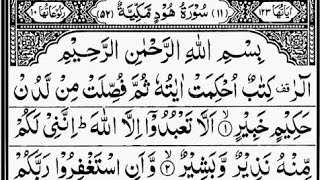 اٰیَاتُهَا ۱۲۳ (۱۱) سُوْرَةُ هُوْدٍ مَّكِّیَّةٌ (۵۲) رُكُوْعَاتُهَا ۱۰
بِسْمِ اللّٰهِ الرَّحْمٰنِ الرَّحِیْمِ
الٓرٰ قف كِتٰبٌ اُحْكِمَتْ اٰیٰتُهٗ ثُمَّ فُصِّلَتْ مِنْ لَّدُنْ
حَكِیْمٍ خَبِیْرٍ ۱ اَلَّا تَعْبُدُوْۤا اِلَّا اللّٰهَ ؕ اِنَّنِیْ لَكُمْ
مِّنْهُ نَذِیْرٌ وَّبَشِیْرٌ ۲ وَّاَنِ اسْتَغْفِرُوْا رَبَّكُمْ